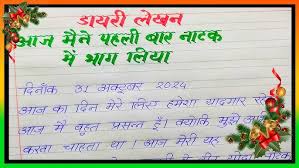 डायरी लेखन
आज मैंने पहली बार नाटक
में भाग लिया
दिनाँक 31 अक्टूबर 2024
आज का दिन मेरे लिए हमेशा यादगार रहे
आज मैं बहुत प्रसन्न हूँ। क्योंकि मुझे
करना चाहता था । आज मेरी यह